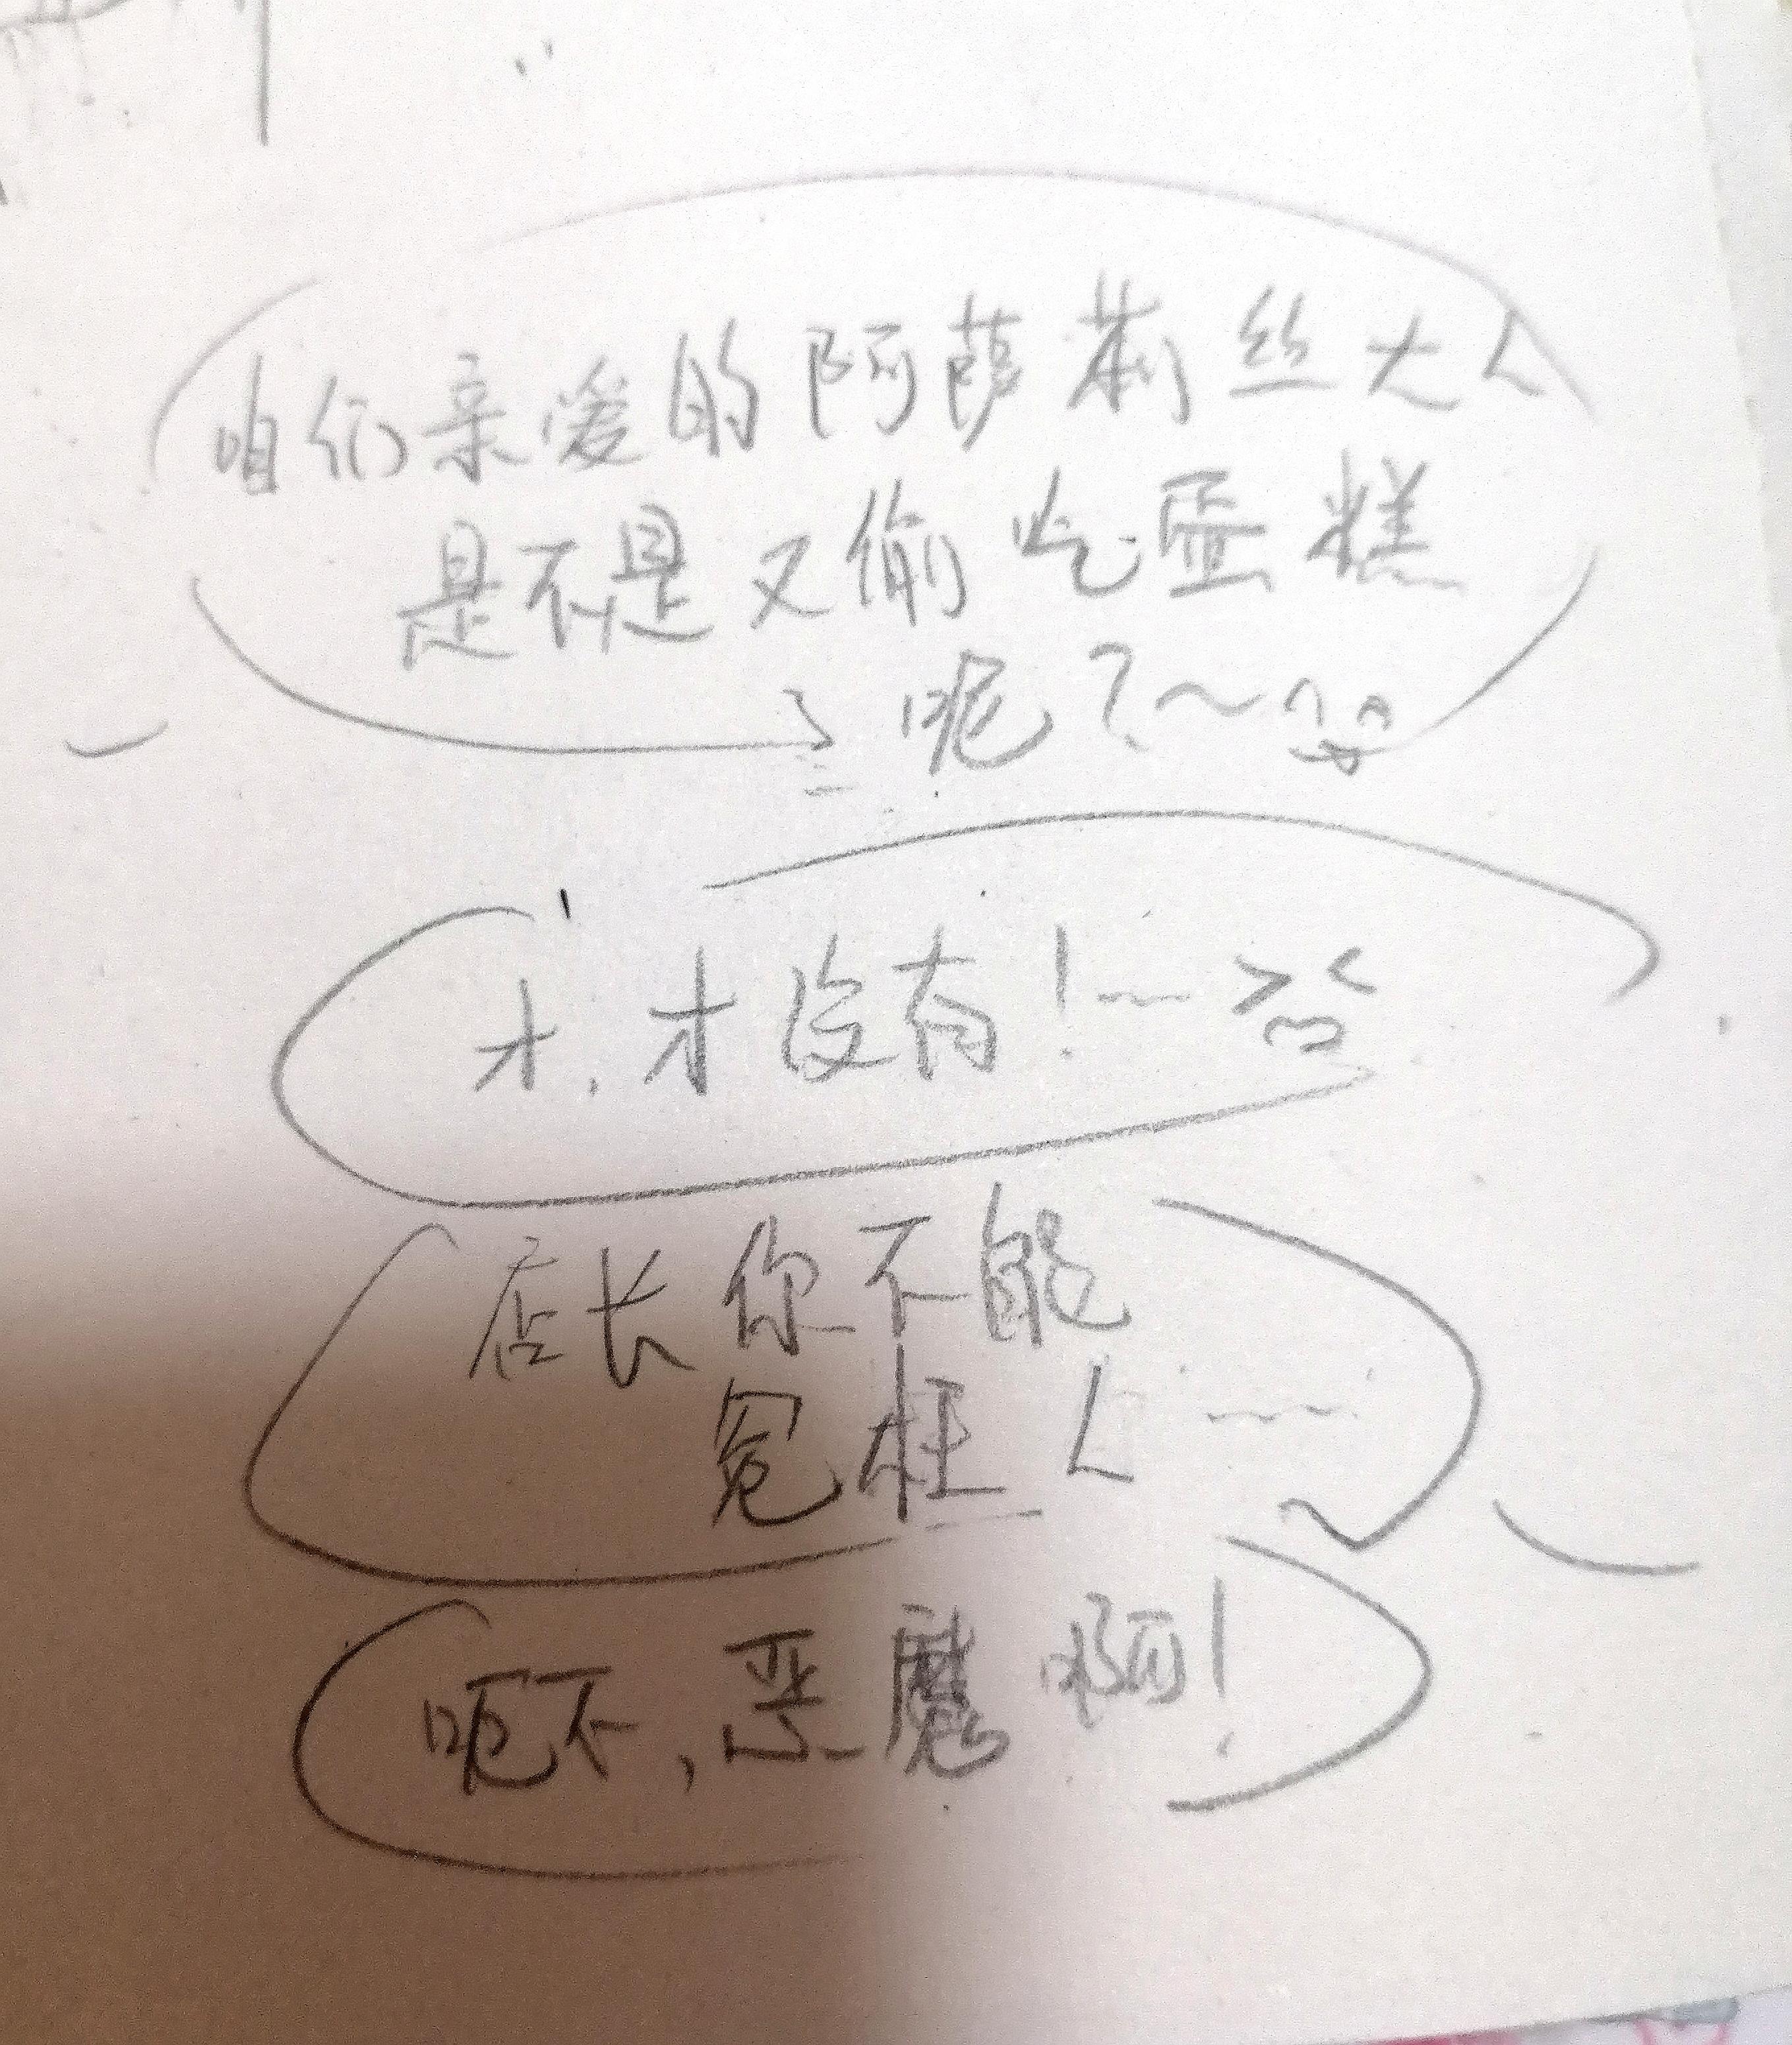 咱们亲爱的阿萨莉丝大人
是不是又偷吃蛋糕
了呢?~
才.才没有!~
店长你不能
冤枉人~
呃不,恶魔啊!